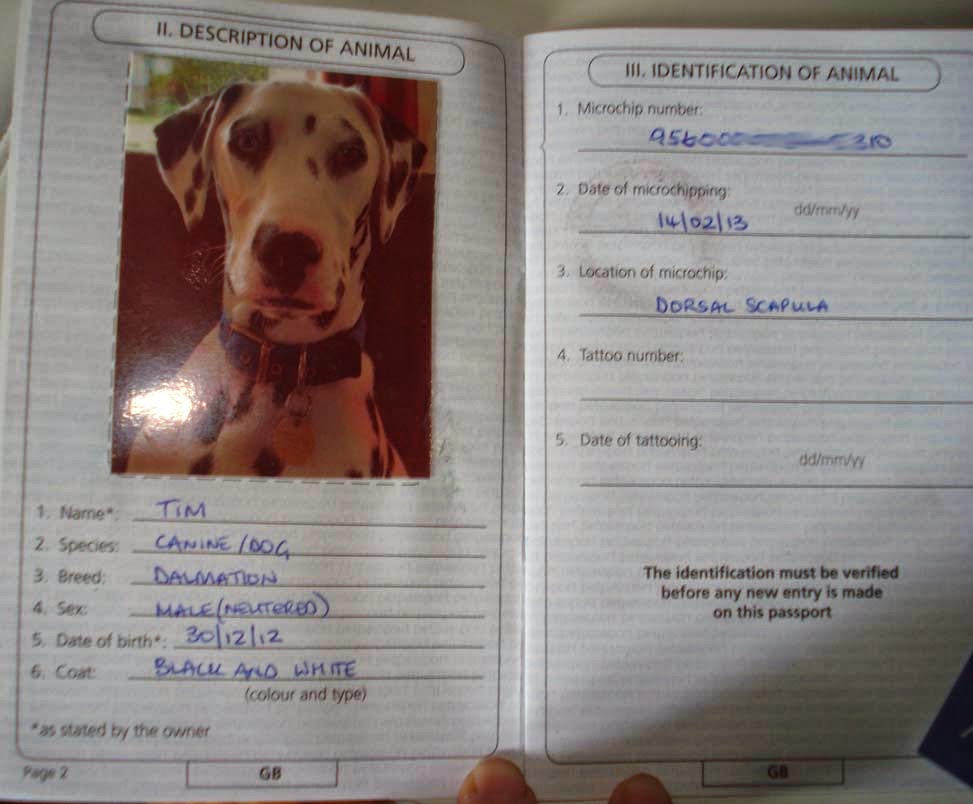 II. DESCRIPTION OF ANIMAL
1. Name*: TIM
2. Species: CANINE/DOG
3. Breed: DALMATION
4. Sex: MALE (NEUTERED)
5. Date of birth*: 30/12/12
6. Coat: BLACK AND WHITE
(colour and type)
*as stated by the owner
Page 2
GB
III. IDENTIFICATION OF ANIMAL
1. Microchip number:
2. Date of microchipping:
dd/mm/yy
14/02/13
3. Location of microchip:
DORSAL SCAPULA
4. Tattoo number:
5. Date of tattooing:
dd/mm/yy
The identification must be verified
before any new entry is made
on this passport
GB